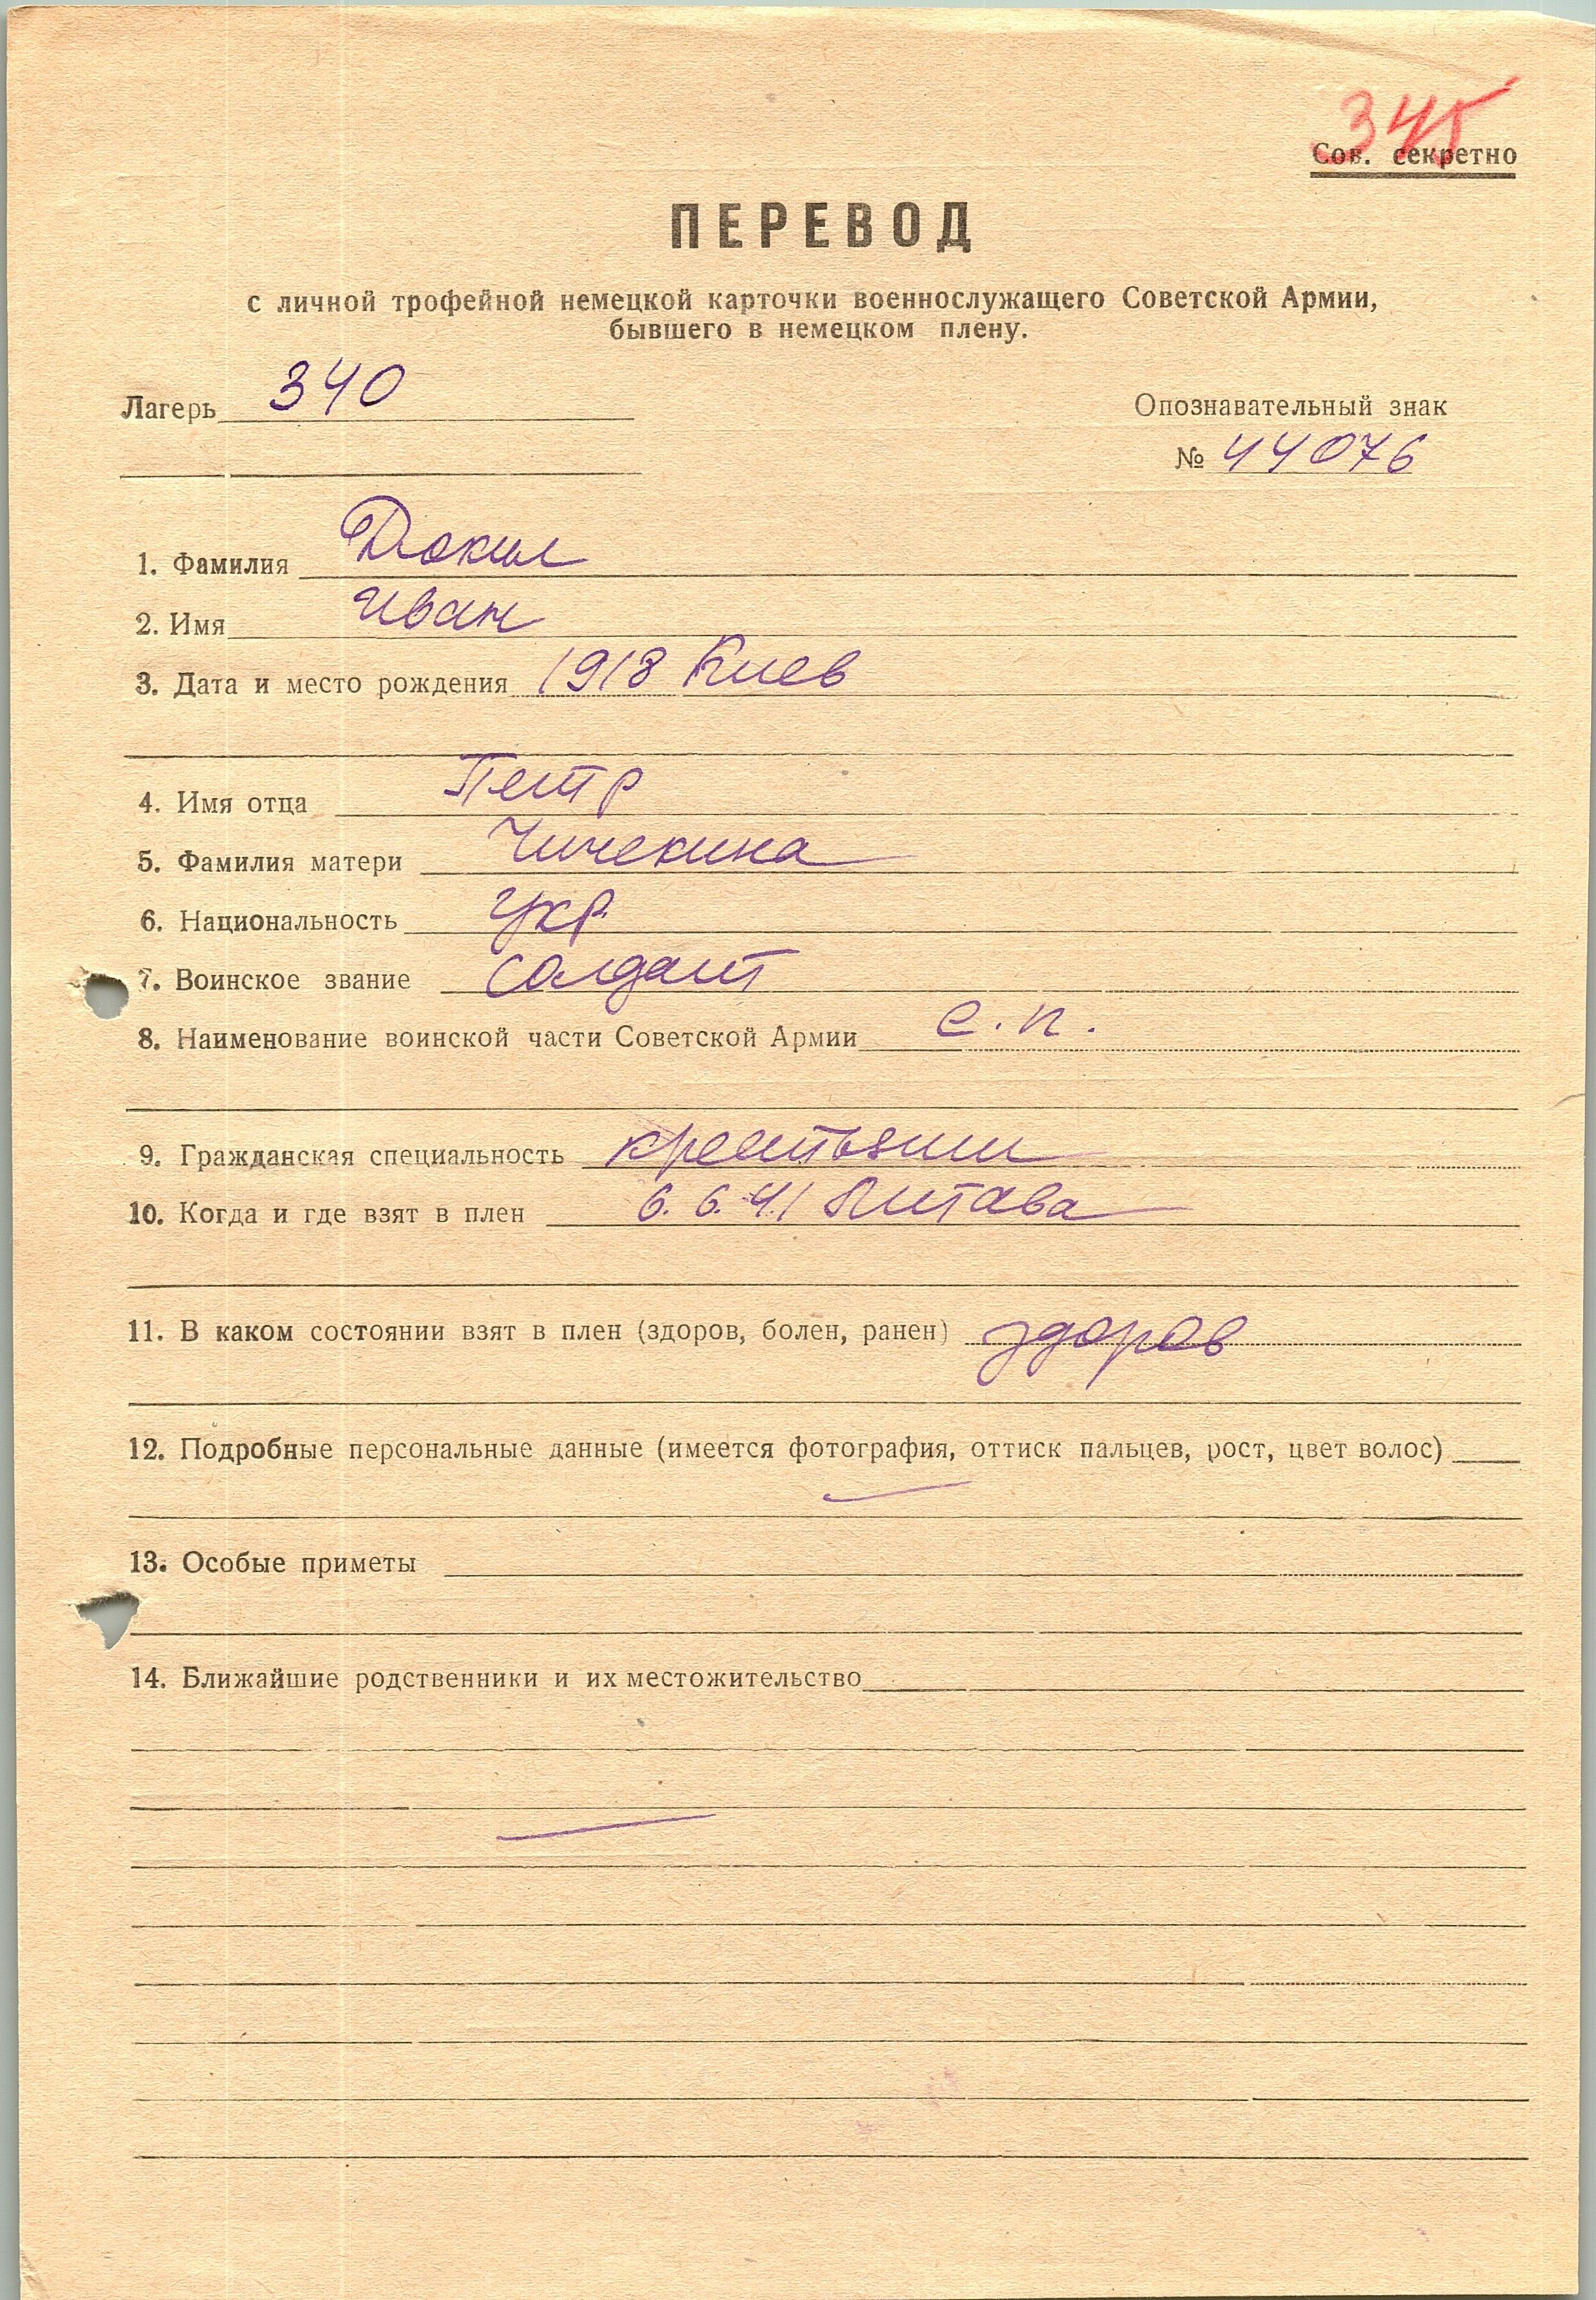 345
Сов. секретно
ПЕРЕВОД
с личной трофейной немецкой карточки военнослужащего Советской Армии,
бывшего в немецком плену.
Лагерь 340
Опознавательный знак
№ 44076
1. Фамилия
2. Имя Иван
3. Дата и место рождения 1918 Киев
4. Имя отца Петр
5. Фамилия матери Чичекина
6. Национальность укр.
7. Воинское звание солдат
8. Наименование воинской части Советской Армии с.п.
9. Гражданская специальность
10. Когда и где взят в плен 6.6.41
11. В каком состоянии взят в плен (здоров, болен, ранен) здоров
12. Подробные персональные данные (имеется фотография, оттиск пальцев, рост, цвет волос)
13. Особые приметы
14. Ближайшие родственники и их местожительство